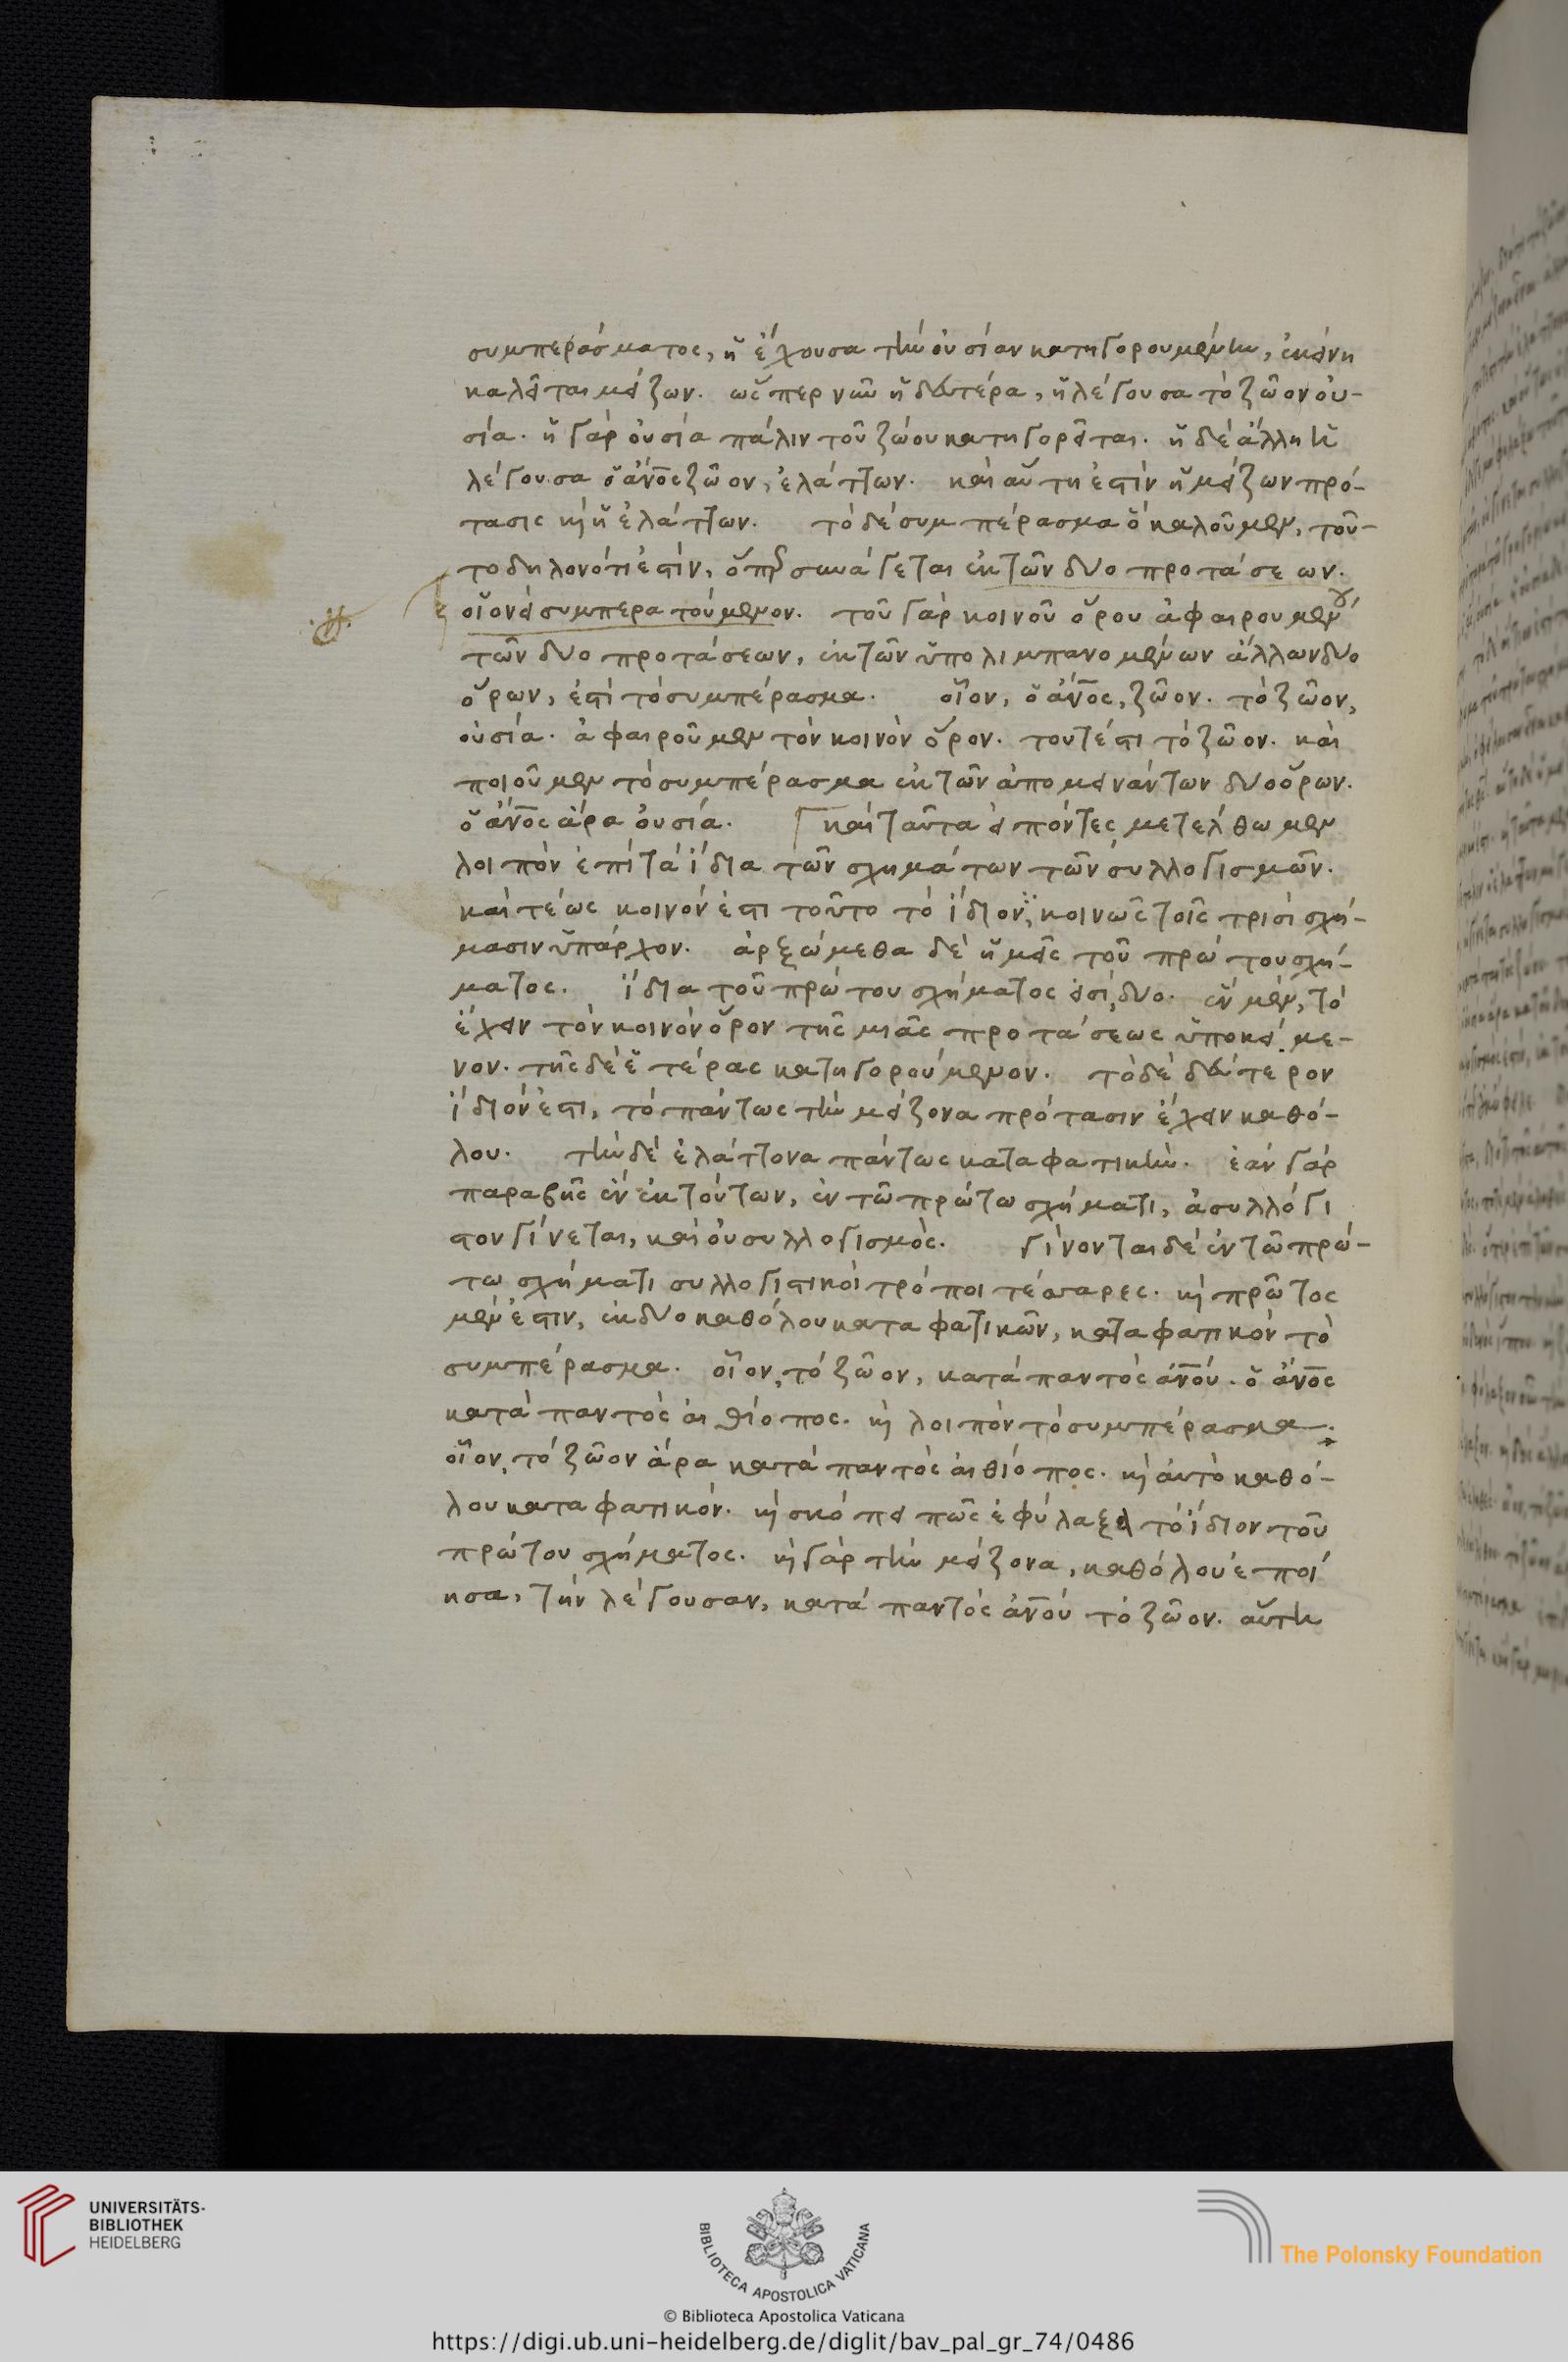 συμπεράσματος, ἡ ἔχουσα τὴν οὐσίαν κατηγορουμένην, ἐκείνη
καλεῖται μείζων. ὥσπερ νῦν ἡ δευτέρα, ἡ λέγουσα τὸ ζῶον οὐ-
σία. ἡ γὰρ οὐσία πάλιν τοῦ ζώου κατηγορεῖται. ἡ δὲ ἄλλη ἡ
λέγουσα ὁ ἄν̅ος ζῶον, ἐλάττων. καὶ αὕτη ἐστὶν ἡ μείζων πρό-
τασις κ̀ ἡ ἐλάττων. τὸ δὲ συμπέρασμα ὃ καλοῦμεν, τοῦ-
το δηλονότι ἐστίν, ὅπερ συνάγεται ἐκ τῶν δύο προτάσεων.
οἱονεὶ συμπερατούμενον. τοῦ γὰρ κοινοῦ ὅρου ἀφαιρουμένου
τῶν δύο προτάσεων, ἐκ τῶν ὑπολιμπανομένων ἄλλων δύο
ὅρων, ἐστὶ τὸ συμπέρασμα. οἷον, ὁ ἄν̅ος, ζῶον. τὸ ζῶον,
οὐσία. ἀφαιροῦμεν τὸν κοινὸν ὅρον. τουτέστι τὸ ζῶον. καὶ
ποιοῦμεν τὸ συμπέρασμα ἐκ τῶν ἀπομεινάντων δύο ὅρων.
ὁ ἄν̅ος ἄρα οὐσία. καὶ ταῦτα εἰπόντες μετέλθωμεν
λοιπὸν ἐπὶ τὰ ἴδια τῶν σχημάτων τῶν συλλογισμῶν.
καὶ τέως κοινόν ἐστι τοῦτο τὸ ἴδιον, κοινῶς τοῖς τρισὶ σχή-
μασιν ὑπάρχον. ἀρξώμεθα δὲ ἡμεῖς τοῦ πρώτου σχή-
ματος. ἴδια τοῦ πρώτου σχήματος εἰσὶ, δύο. ἓν μὲν, τὸ
ἔχειν τὸν κοινὸν ὅρον τῆς μιᾶς προτάσεως ὑποκείμε-
νον. τῆς δὲ ἑτέρας κατηγορούμενον. τὸ δὲ δεύτερον
ἴδιόν ἐστι, τὸ πάντως τὴν μείζονα πρότασιν ἔχειν καθό-
λου. τὴν δὲ ἐλάττονα πάντως καταφατικήν. ἐὰν γὰρ
παραβῇς ἓν ἐκ τούτων, ἐν τῷ πρώτω σχήματι, ἀσυλλόγι
στον γίνεται, καὶ οὐ συλλογισμὸς. γίνονται δὲ ἐν τῷ πρώ-
τω σχήματι συλλογιστικοὶ τρόποι τέσσαρες. κ̀ πρῶτος
μέν ἐστιν, ἐκ δύο καθόλου καταφατικῶν, καταφατικὸν τὸ
συμπέρασμα. οἷον, τὸ ζῶον, κατὰ παντὸς ἀν̅ού. ὁ ἄν̅ος
κατὰ παντὸς αἰθίοπος. κ̀ λοιπὸν τὸ συμπέρασμα.
οἷον, τὸ ζῶον ἄρα κατὰ παντὸς αἰθίοπος. κ̀ αὐτὸ καθό-
λου καταφατικόν. κ̀ σκόπει πῶς ἐφύλαξα τὸ ἴδιον τοῦ
πρώτου σχήματος. κ̀ γὰρ τὴν μείζονα, καθόλου ἐποί
ησα, τὴν λέγουσαν, κατὰ παντὸς ἀν̅ού τὸ ζῶον. αὕτη
UNIVERSITÄTS-
BIBLIOTHEK
HEIDELBERG
BIBLIOTECA APOSTOLICA VATICANA
The Polonsky Foundation
© Biblioteca Apostolica Vaticana
https://digi.ub.uni-heidelberg.de/diglit/bav_pal_gr_74/0486